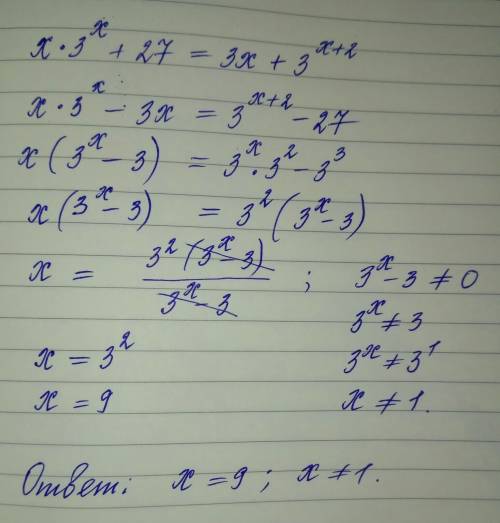 x · 3^x + 27 = 3x + 3^(x+2)
x · 3^x - 3x = 3^(x+2) - 27
x (3^x - 3) = 3^x · 3^2 - 3^3
x (3^x - 3) = 3^2 (3^x - 3)
x = 3^2 (3^x - 3) / (3^x - 3) ; 3^x - 3 ≠ 0
3^x ≠ 3
x = 3^2 3^x ≠ 3^1
x = 9 x ≠ 1.
Ответ: x = 9 ; x ≠ 1.